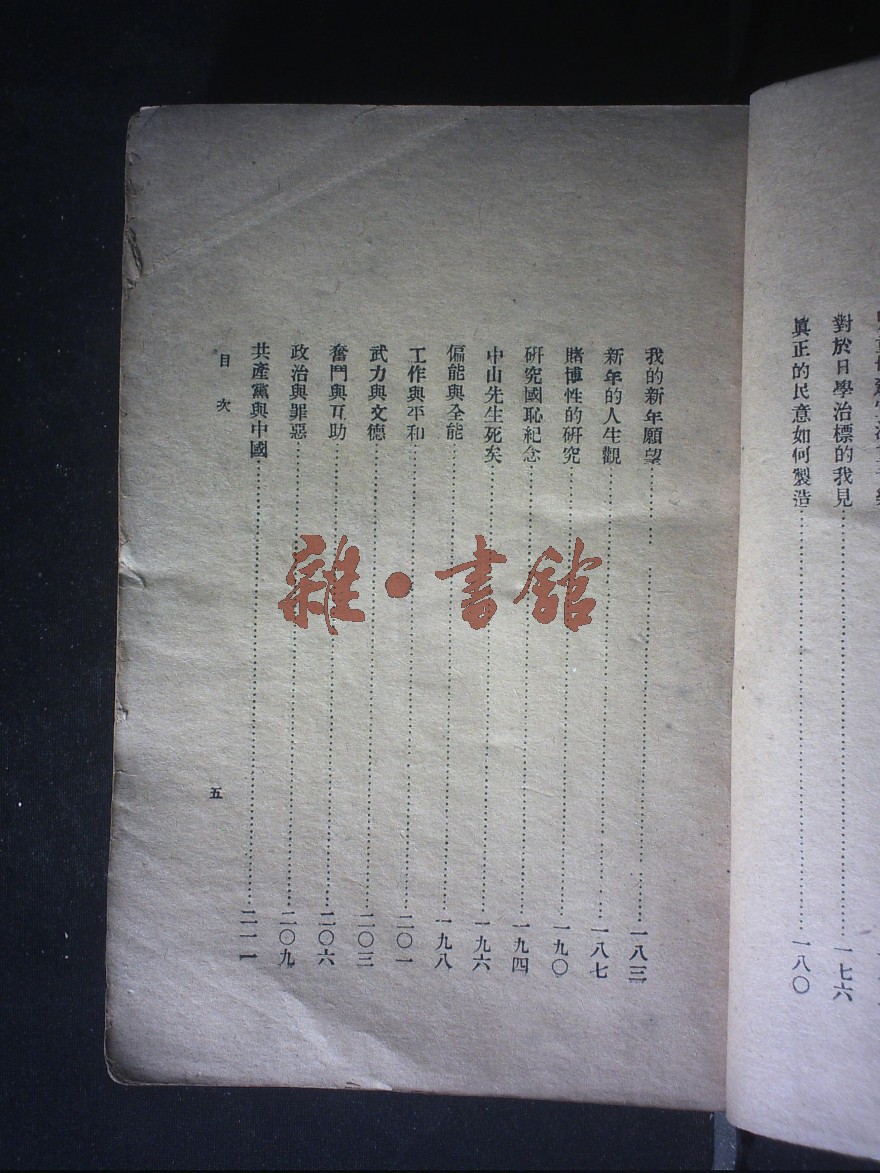 對於日學治標的我見 一七六
眞正的民意如何製造 一八〇
我的新年願望 一八三
新年的人生觀 一八七
賭博性的研究 一九〇
研究國恥紀念 一九四
中山先生死矣 一九六
偏能與全能 一九八
工作與平和 二〇一
武力與文德 二〇三
奮鬥與互助 二〇六
政治與罪惡 二〇九
共產黨與中國 二一一
目次
五
雜·書館